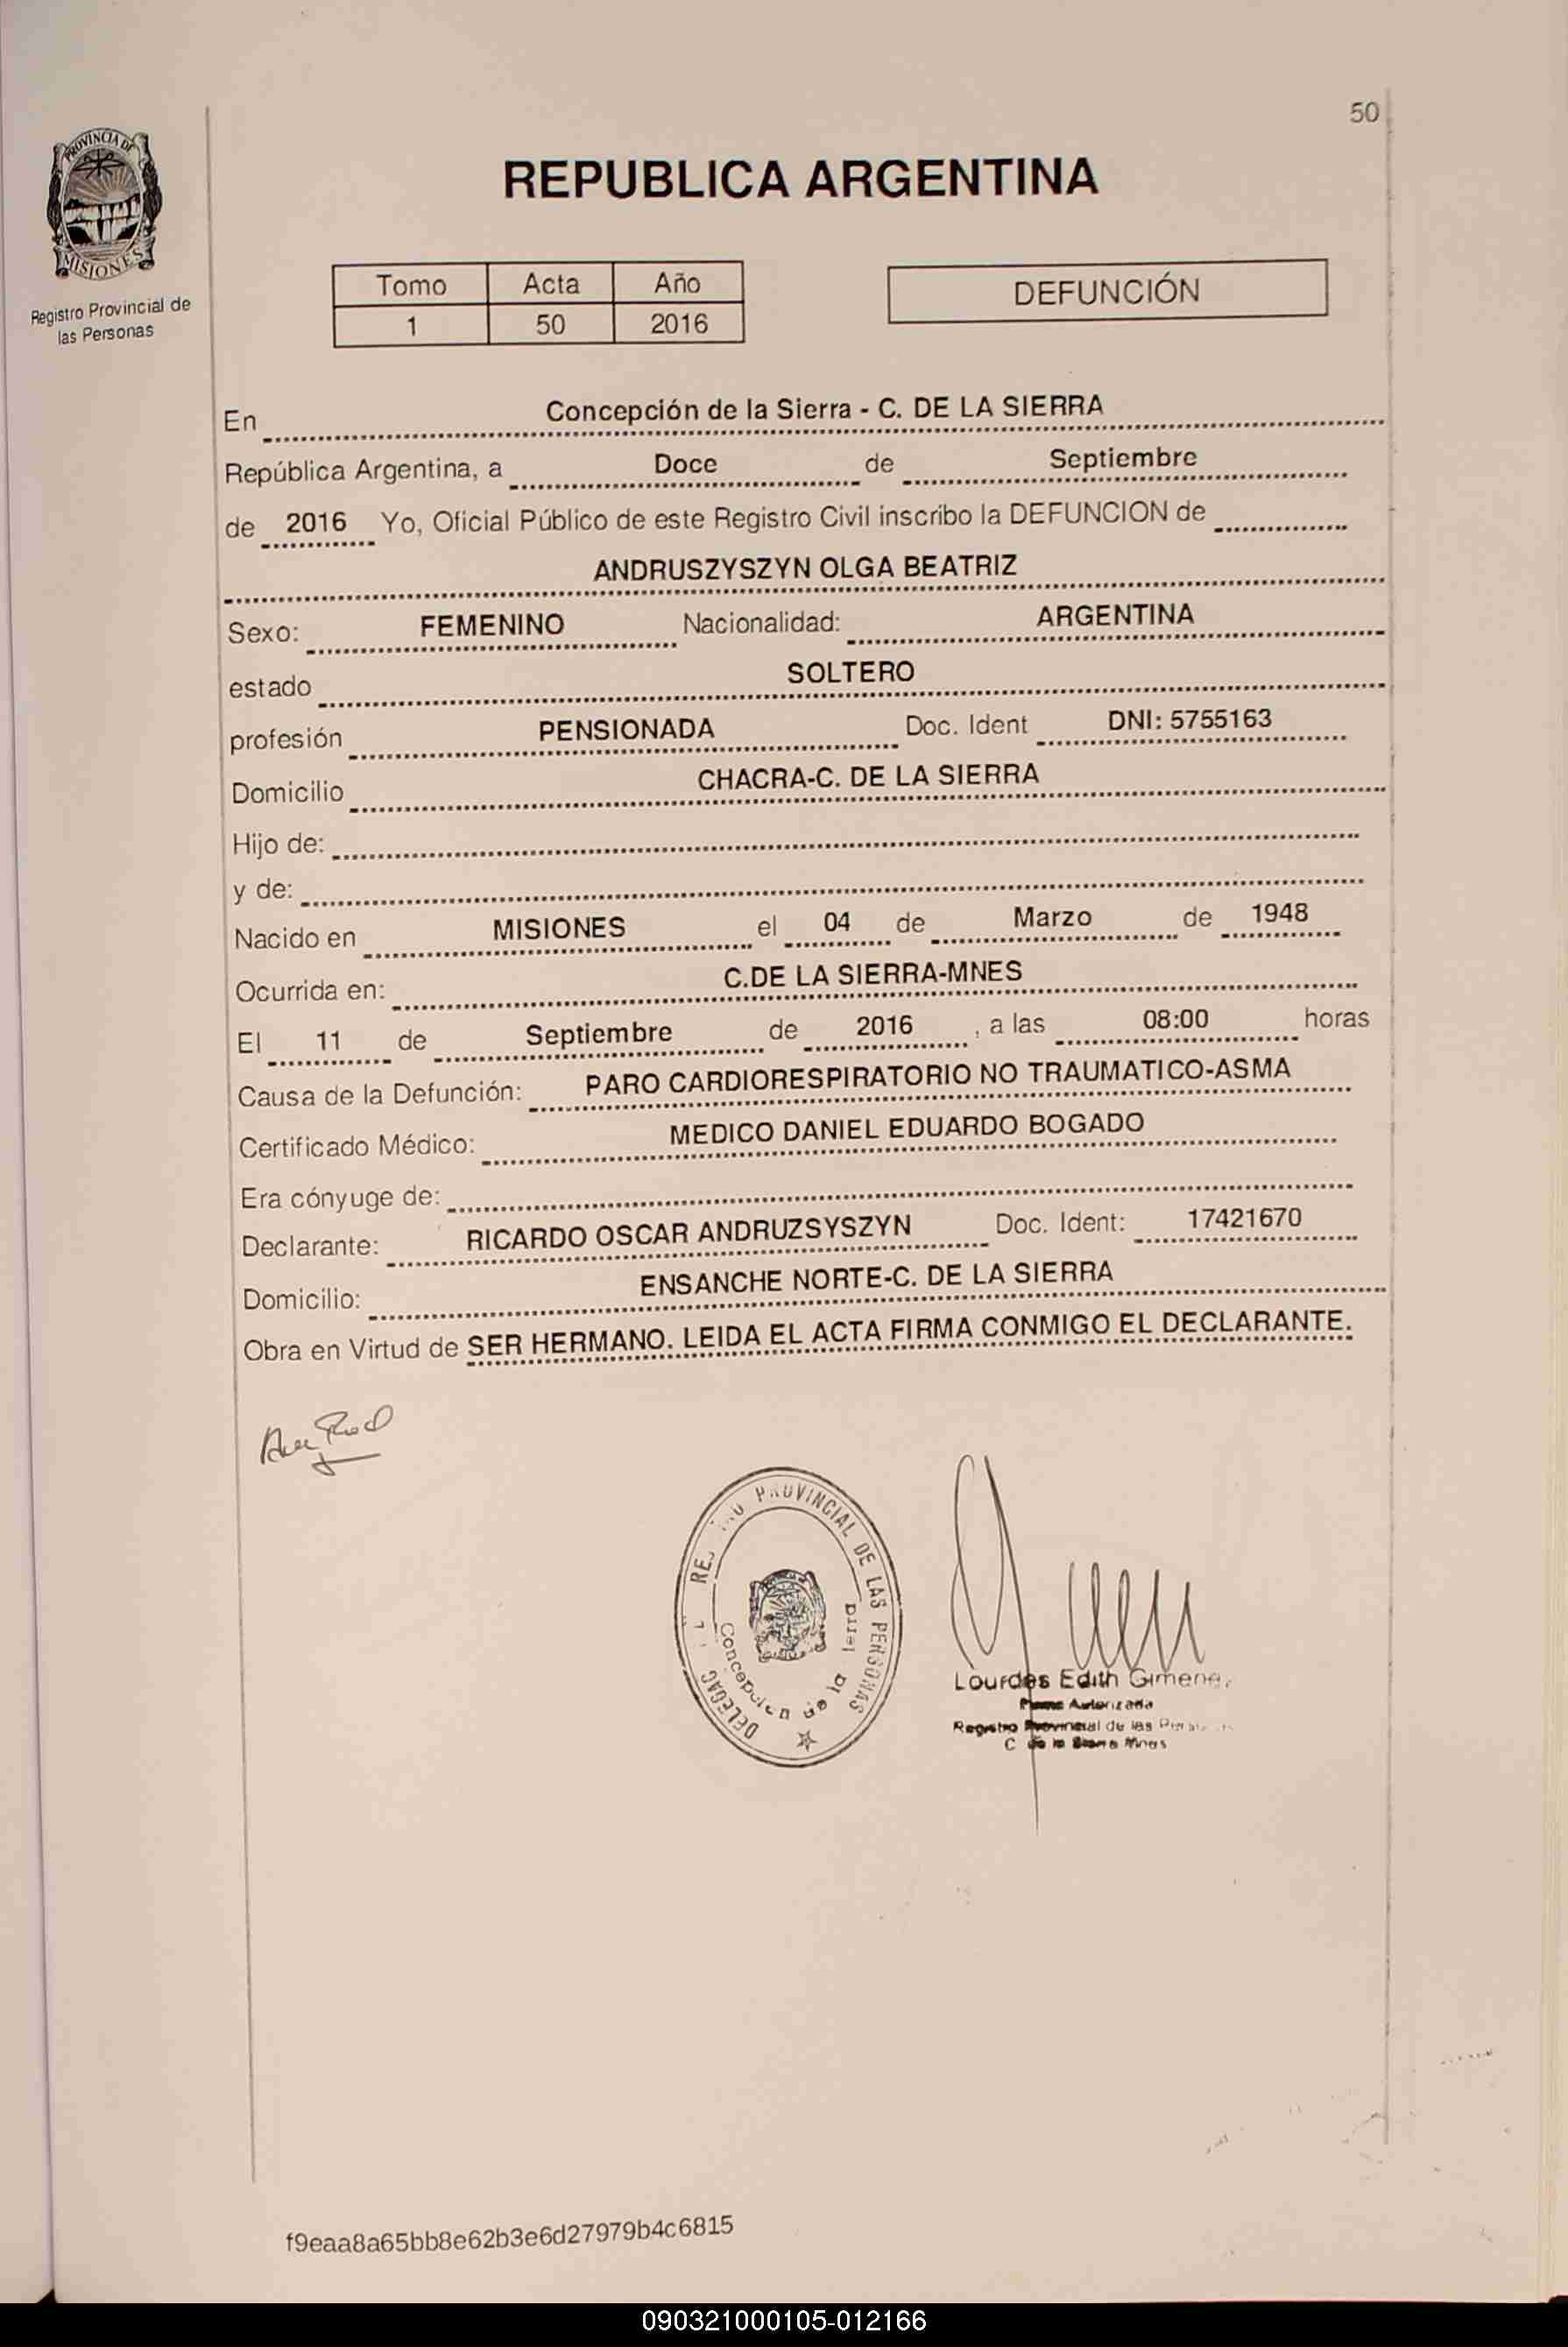 50
PROVINCIA DE
MISIONES
Registro Provincial de
las Personas
REPUBLICA ARGENTINA
Tomo Acta Año
1 50 2016
DEFUNCIÓN
En Concepción de la Sierra - C. DE LA SIERRA
República Argentina, a Doce de Septiembre
de 2016 Yo, Oficial Público de este Registro Civil inscribo la DEFUNCION de
ANDRUSZYSZYN OLGA BEATRIZ
Sexo: FEMENINO Nacionalidad: ARGENTINA
estado SOLTERO
profesión PENSIONADA Doc. Ident DNI: 5755163
Domicilio CHACRA-C. DE LA SIERRA
Hijo de:
y de:
Nacido en MISIONES el 04 de Marzo de 1948
Ocurrida en: C.DE LA SIERRA-MNES
El 11 de Septiembre de 2016 , a las 08:00 horas
Causa de la Defunción: PARO CARDIORESPIRATORIO NO TRAUMATICO-ASMA
Certificado Médico: MEDICO DANIEL EDUARDO BOGADO
Era cónyuge de:
Declarante: RICARDO OSCAR ANDRUZSYSZYN Doc. Ident: 17421670
Domicilio: ENSANCHE NORTE-C. DE LA SIERRA
Obra en Virtud de SER HERMANO. LEIDA EL ACTA FIRMA CONMIGO EL DECLARANTE.
PROVINCIAL DE LAS PERSONAS
Concepcion de la
Lourdes Edith Gimene
Autorizada
Registro Provincial de las
C de la Sierra Mnes
f9eaa8a65bb8e62b3e6d27979b4c6815
090321000105-012166